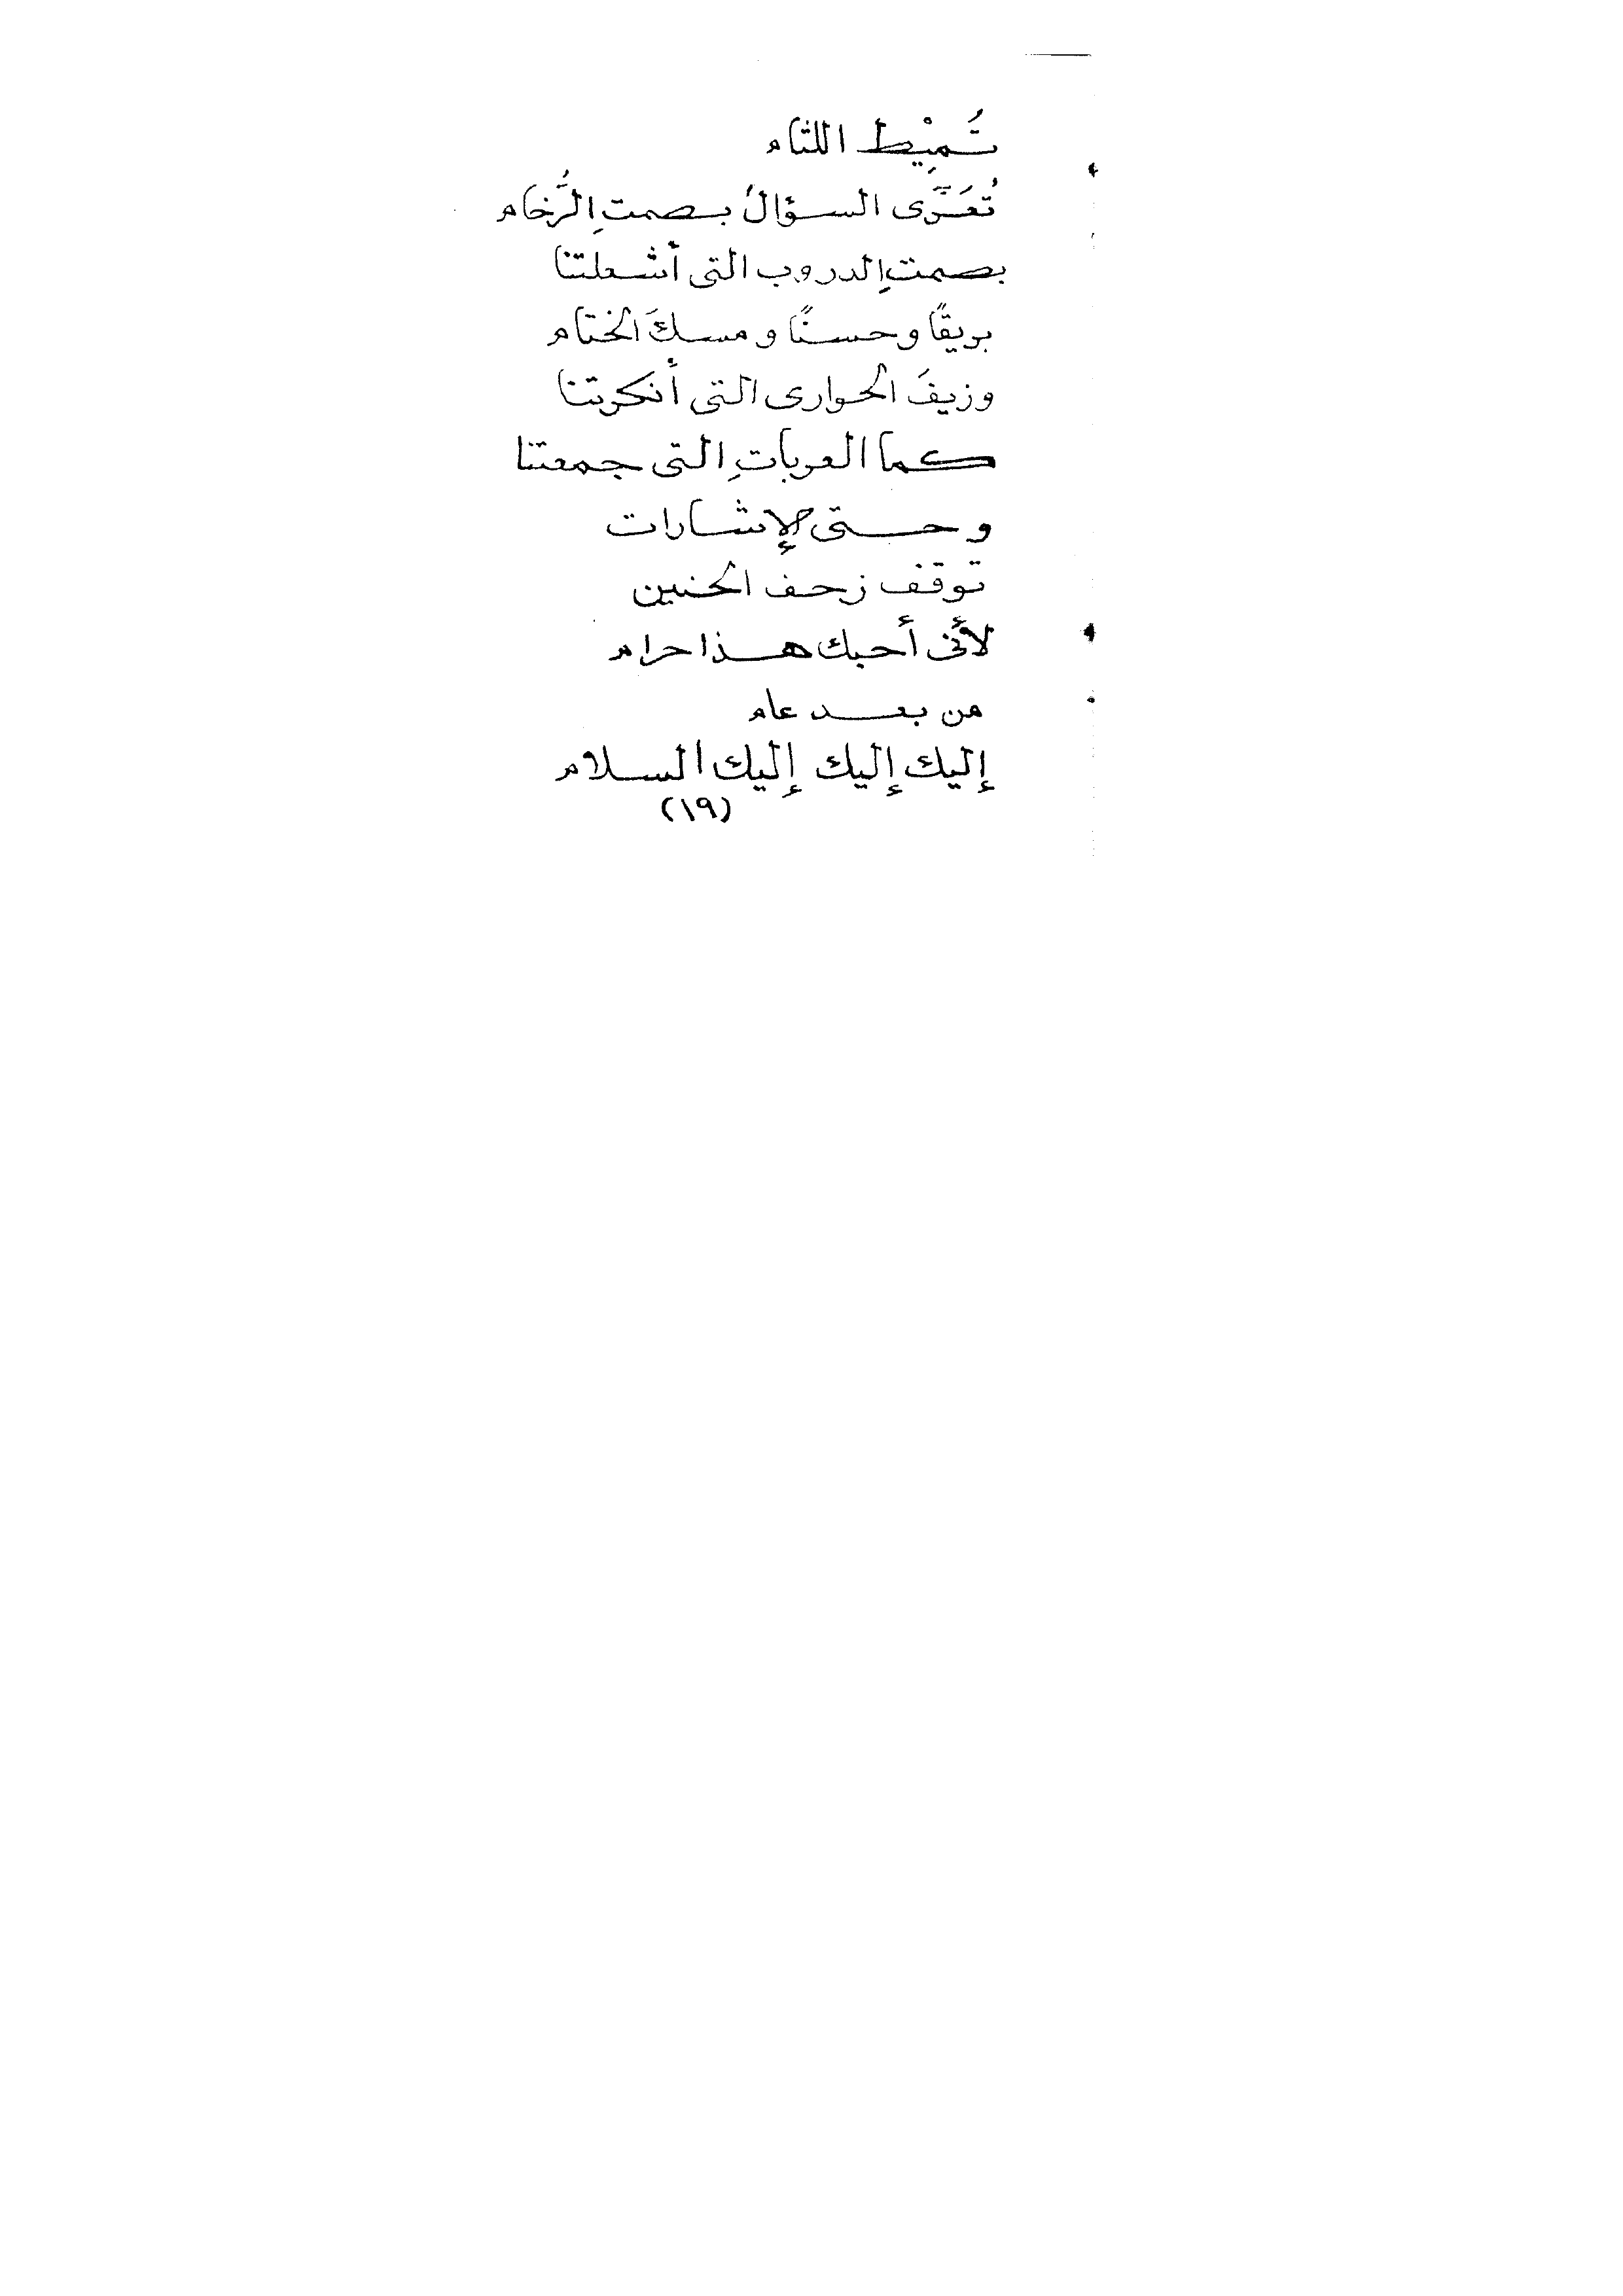 تُمِيْط اللثام
تُعَرَّى السؤالُ بصمتِ الرُّخام
بصمتِ الدروب التى أشعلتنا
بريقًا وحسنًا ومسكَ الختام
وزيفَ الحوارى التى أنكرتنا
كما العرباتِ التى جمعتنا
وحتى الإشارات
توقف زحف الحنين
لأنى أحبك هذا حرام
من بعد عام
إليك إليك إليك السلام
(١٩)